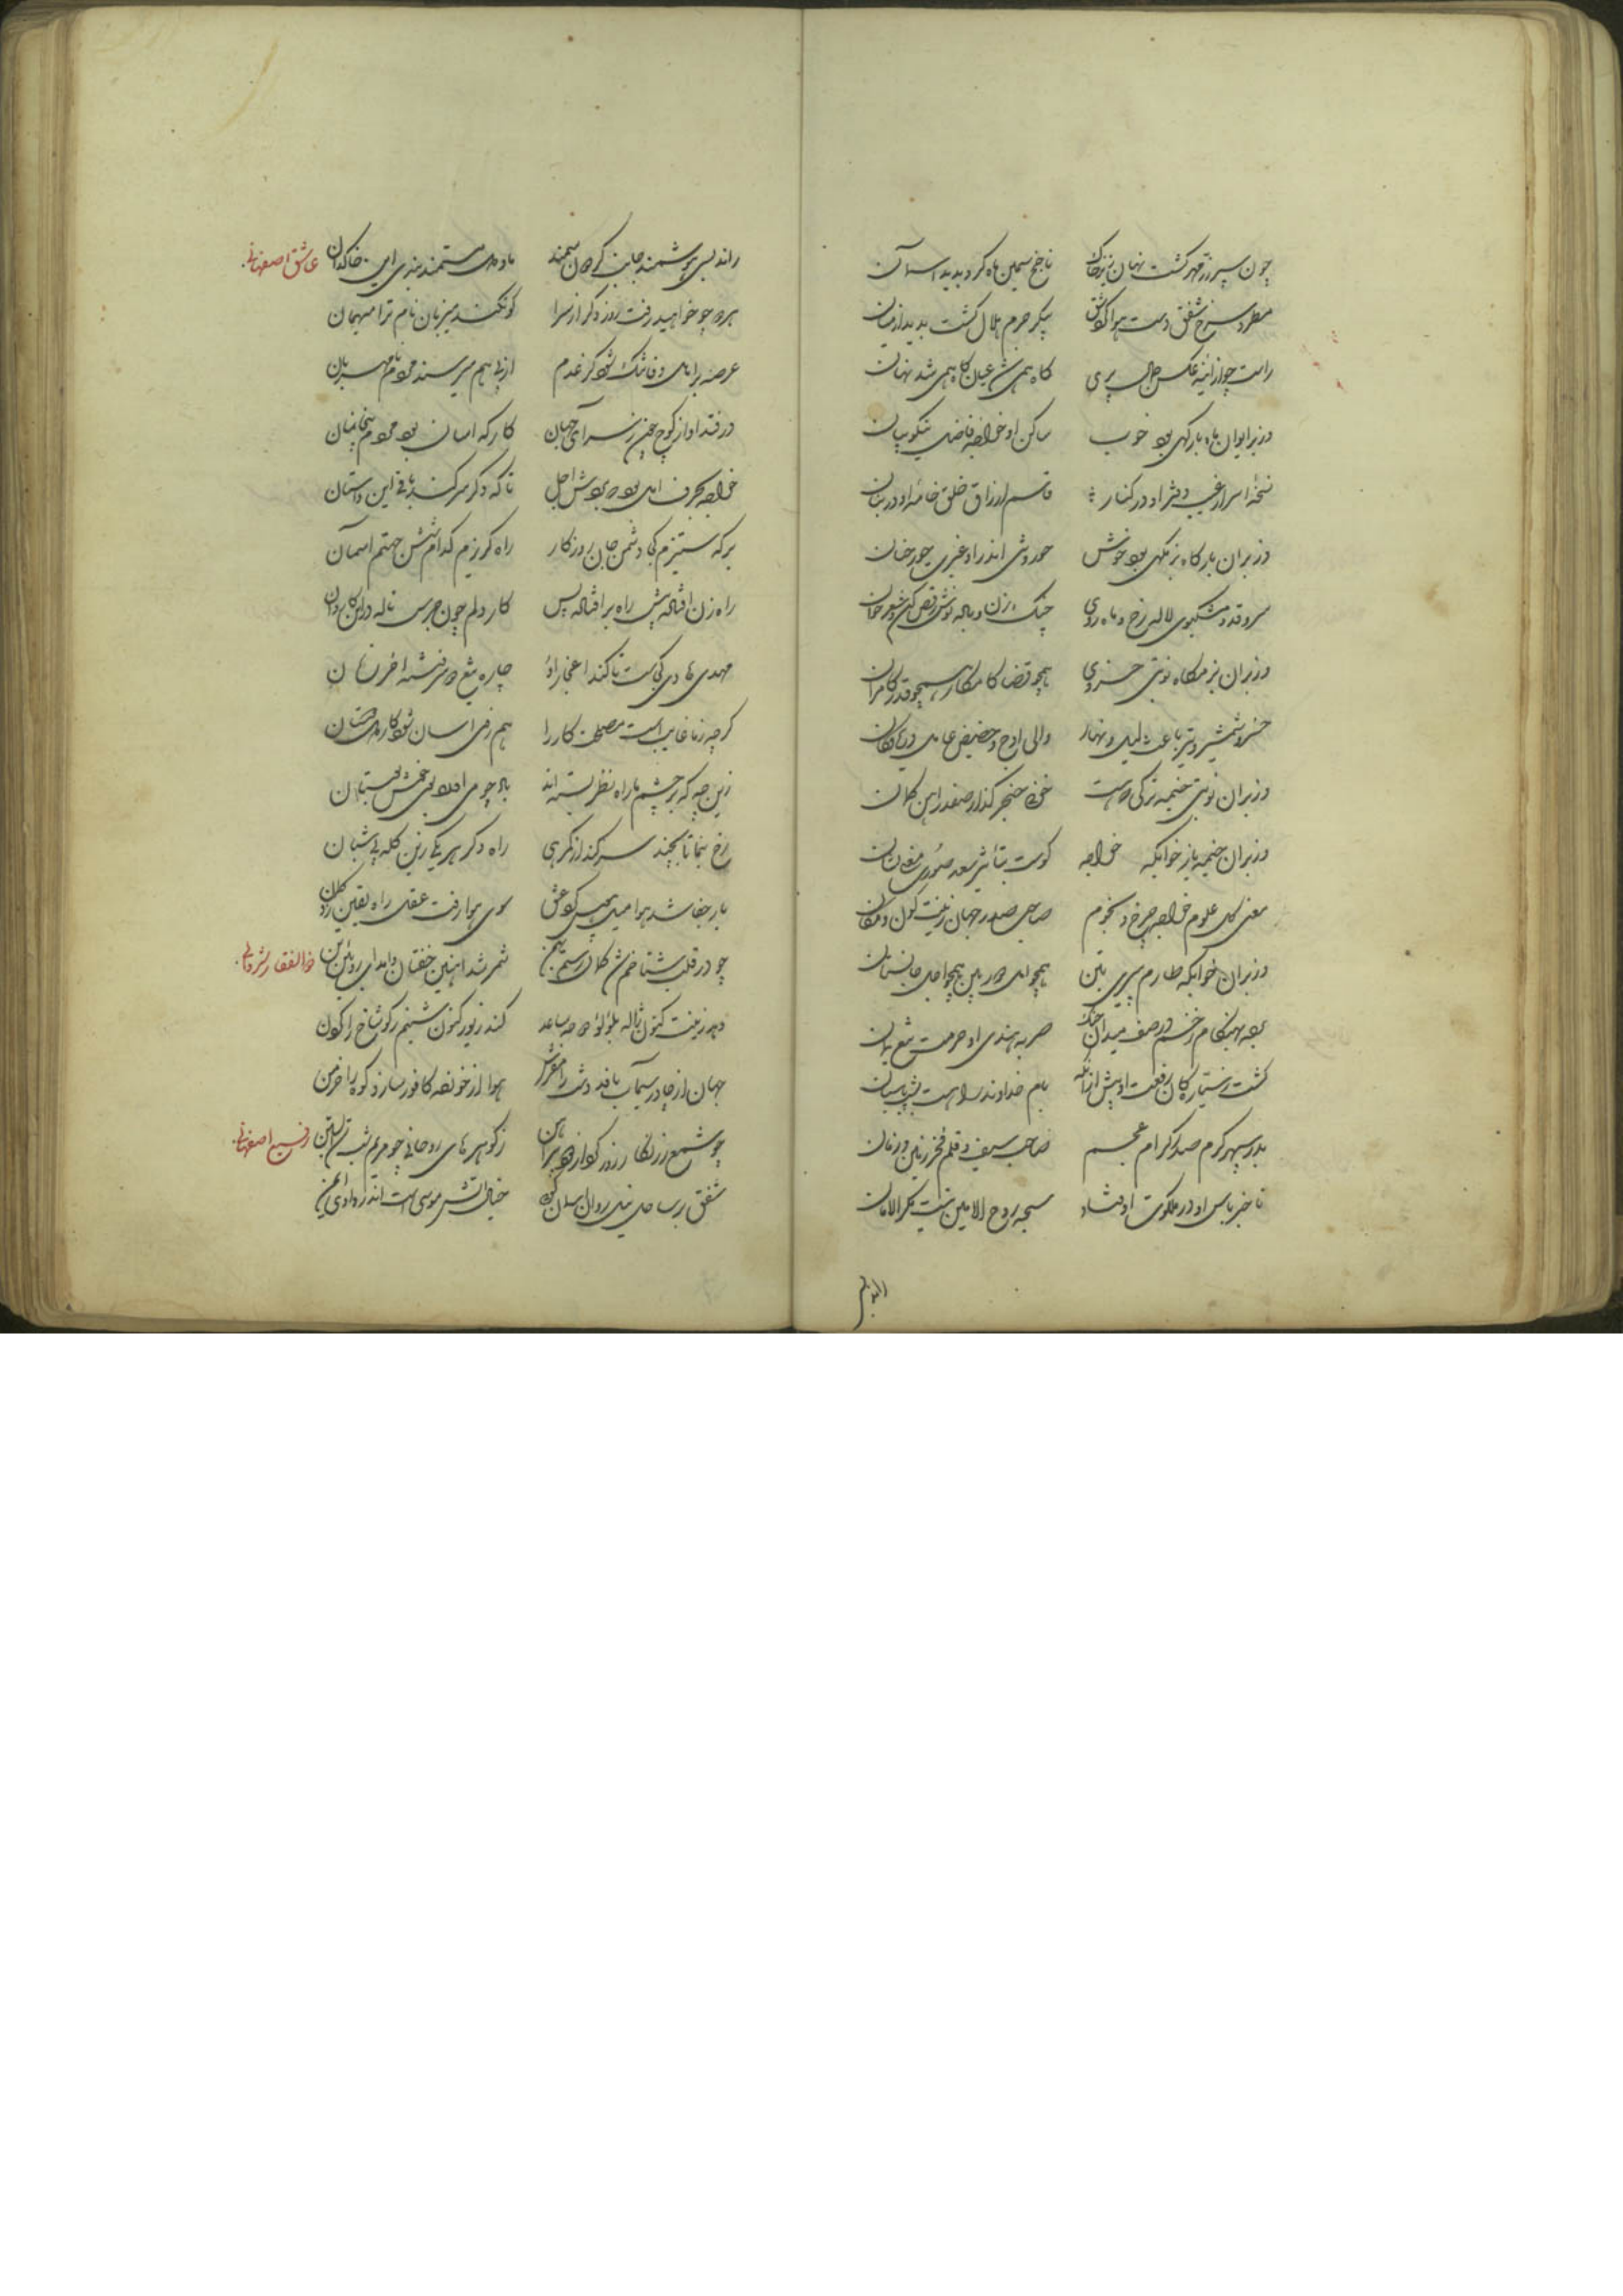 چون سپر زر مهر گشت نهان زیر خاک ناچخ سیمین ماه کرد پدید آسمان
مطرد سرخ شفق دست هوا کرد شق پیکر جرم هلال گشت پدید از میان
راست چو از آینه عکس جمال پری گاه همی شد عیان گاه همی شد نهان
وز بر ایوان ماه بارگهی بود خوب ساکن او خواجه فاضل نیکو بیان
نسخه اسرار غیب دفتر او در کنار قاسم ارزاق خلق خامه او در بنان
وز بر آن بارگاه بزمگهی بود خوش حوروشی اندرو غیری حور جنان
سرو قد و مشکبوی لاله رخ و ماه روی چنگ زن و باده نوش رقص کن و شعر خوان
وز بر آن بزمگاه نوبتی خسروی همچو قضا کامکار همچو قدر کامران
خسرو شمشیر و شیر باعث لیل و نهار والی اوج و حضیض عامل دریا و کان
وز بر آن نوبتی خیمه ترکی که هست خونی خنجر گذار صفدر آهن کمان
وز بر آن خیمه باز خوابگه خواجه کوست بتاثیر سعد صورت و معنی جان
مفتی کل علوم خواجه چرخ و نجوم صاحب صدر جهان زینت کون و مکان
وز بر آن خوابگه طارم پیری متین همچو امل دوربین همچو اجل جانستان
بود بهنگام خشم در صف میدان جنگ حربه هندی او حرمت تیغ یمان
گشت ز سیارگان رفعت او بیش از آنکه بام خداوند را هست بشب پاسبان
بدر سپهر کرم صدر کرام عجم صاحب سیف و قلم فخر زمین و زمان
تا خبر بأس او در ملکوت اوفتاد سبحه روح الامین نیست مگر الامان
راند بسی
راند بسی هوشمند جانب گردون سمند ما و دل مستمند بندی این خاکدان عاشق اصفهانی
هر که چو خواهید رفت روز دگر از سرا گو نکند میزبان نام ترا میهمان
عرصه بر اهل وفا تنگ شود کز عدم از پی هم میرسند مردم نامهربان
در فتد آواز کوچ چون ز سرای جهان کار که آسان بود مردم بیخانمان
خواجه بحرف امل بود و ربودش اجل تا که دگر سر کند باقی این داستان
بر که ستیزم یکی دشمن جان روزگار راه گریزم کدام شش جهتم آسمان
راه زن افتاده پیش راه بر افتاده پس کار دلم چون جرس ناله در این کاروان
مهدی هادی کجاست تا کند اعجاز او چاره تیغ و فتنه آخر زمان
گرچه ز ما غایب است مصلحت کار را هم ز وی آسان شود کار
زین چه که بر چشم ما راه نظر بسته‌اند
رخ بنما تا بچند سر کند از گمرهی راه دگر هر یکی زین گله بی شبان
سوی هوا رفت عقل راه یقین زد گمان
چو در قلب شتا خم شد کمان رستم بهمن شمر شد آهنین خفتان و ابدان روئین تن ذوالفقار شروانی
دهد زینت کنون ژاله بلؤلؤ ساعد کند زیور کنون شبنم گوشتاخ را گردن
جهان از چادر سیماب بافد دشت را مفرش هوا از خونصه کافور سازد کوه را خرمن
چو شمع زرنگار روز ز گوهرهای روحانی چو مریم شب آبستن رفیع اصفهانی
شفق بر ساحل نیل خیال آتش موسی است اندر وادی ایمن